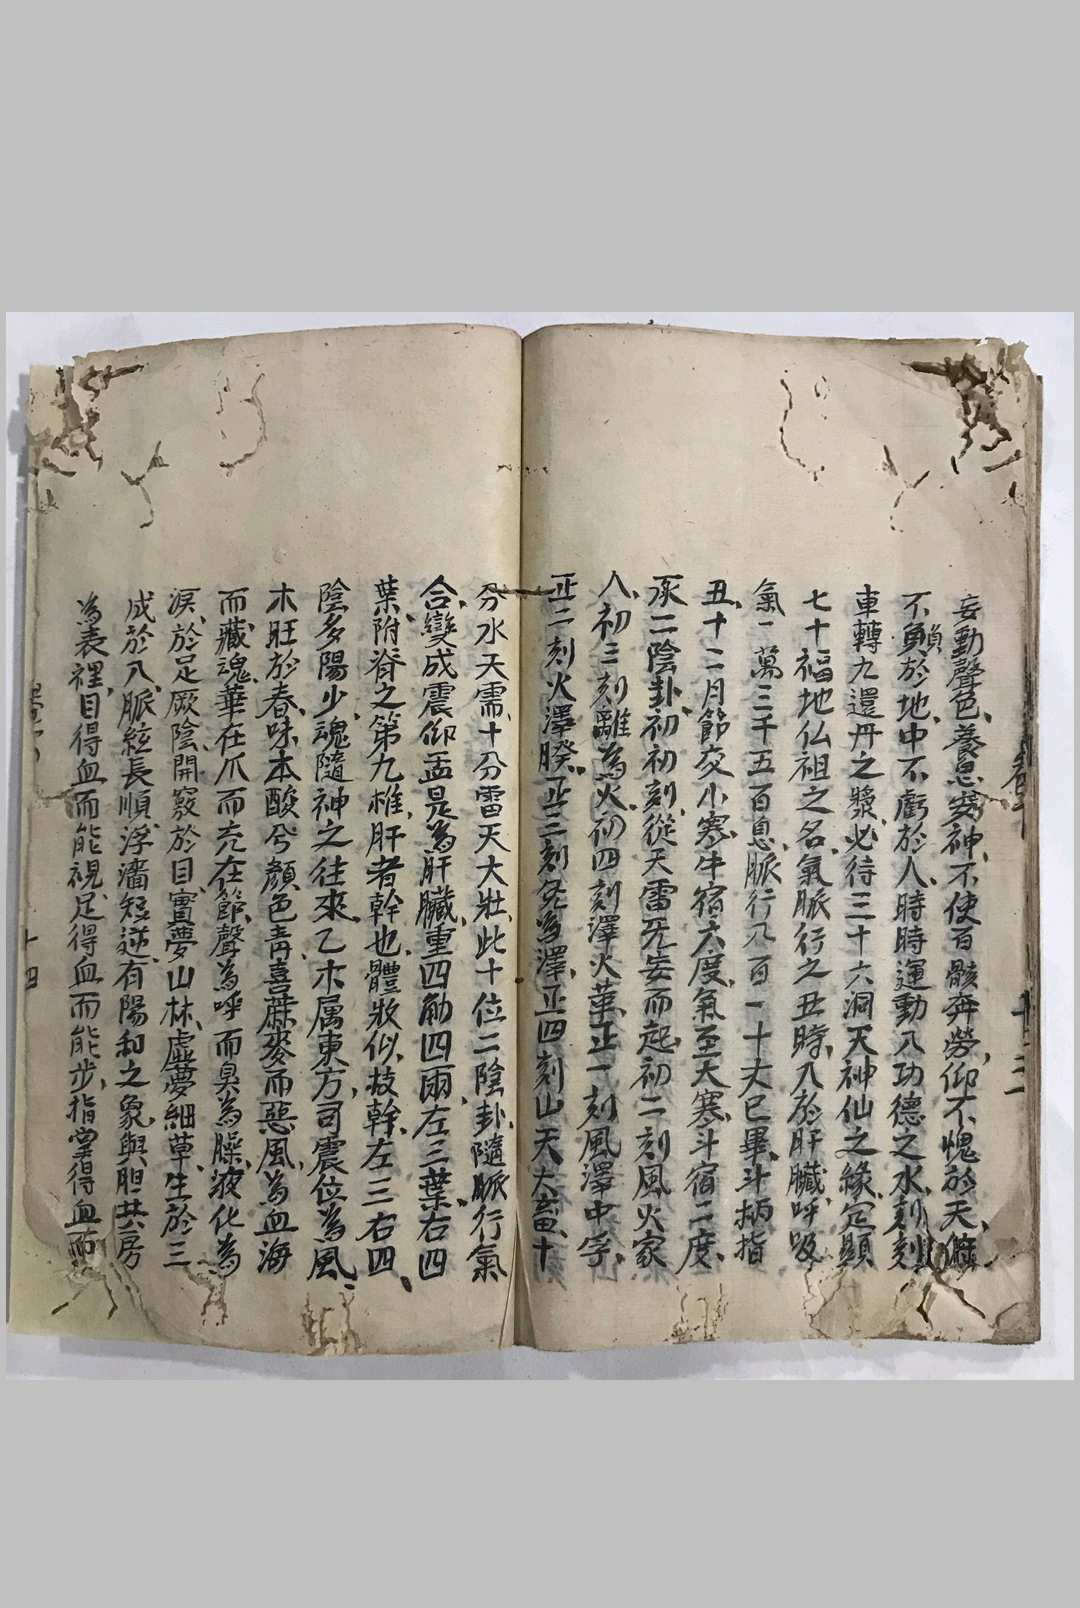 妄動聲色、養息安神、不使百骸奔勞、仰不愧於天、俯
不負於地、中不虧於人、時時運動八功德之水、刻刻
車轉九還丹之漿、必待三十六洞天神仙之緣、定顯
七十福地仏祖之名、氣脈行之丑時、入於肝臟、呼吸
氣一萬三千五百息、脈行八百一十丈已畢、斗柄指
丑、十二月節交小寒、牛宿六度、氣至大寒、斗宿二度、
承二陰卦、初初刻、從天雷旡妄而起、初二刻風火家
人、初三刻離為火、初四刻澤火革、正一刻風澤中孚、
正二刻火澤睽、正三刻兌為澤、正四刻山天大畜、十
分水天需、十分雷天大壯、此十位二陰卦、隨脈行氣
合、變成震仰盂、是為肝臟、重四觔四兩、左三葉、右四
葉、附脊之第九椎、肝者幹也、體狀似枝幹、左三右四、
陰多陽少、魂隨神之往來、乙木属東方、司震位為風、
木旺於春、味本酸兮顏色青、喜蔴麥而惡風、為血海
而藏魂、華在爪而充在節、聲為呼而臭為臊、液化為
淚、於足厥陰、開竅於目、實夢山林、虛夢細草、生於三
成於八、脈絃長順、浮濇短逆、有陽和之象、與胆共房
為表裡、目得血而能視、足得血而能步、指掌得血而
十三
十四